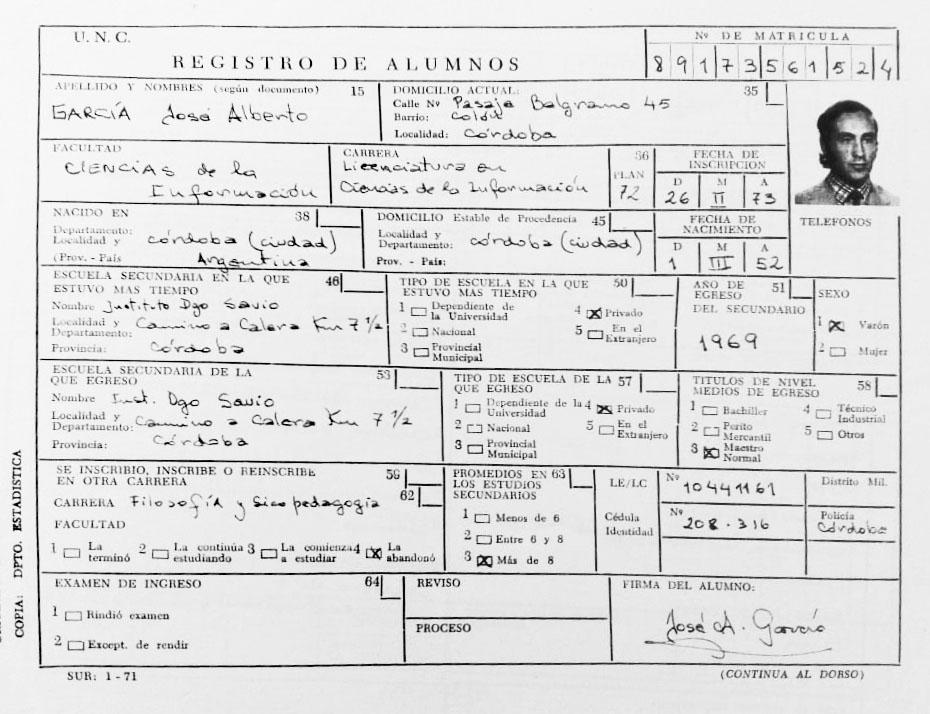 U.N.C.
REGISTRO DE ALUMNOS
Nº DE MATRICULA
8 9 1 7 3 5 6 1 5 2 4
APELLIDO Y NOMBRES (según documento) 15
GARCÍA José Alberto
DOMICILIO ACTUAL: 35
Calle Nº Pasaje Belgrano 45
Barrio: Colón
Localidad: Córdoba
FACULTAD
CIENCIAS de la
Información
CARRERA
Licenciatura en
Ciencias de la Información
36
PLAN
72
FECHA DE
INSCRIPCION
D M A
26 II 73
NACIDO EN 38
Departamento:
Localidad y córdoba (ciudad)
(Prov. - País Argentina
DOMICILIO Estable de Procedencia 45
Localidad y
Departamento: córdoba (ciudad)
Prov. - País:
FECHA DE
NACIMIENTO
D M A
1 III 52
TELEFONOS
ESCUELA SECUNDARIA EN LA QUE 46
ESTUVO MAS TIEMPO
Nombre Instituto Dgo Savio
Localidad y Camino a Calera Km 7 1/2
Departamento:
Provincia: Córdoba
TIPO DE ESCUELA EN LA QUE 50
ESTUVO MAS TIEMPO
1 Dependiente de
la Universidad
2 Nacional
3 Provincial
Municipal
4 Privado
5 En el
Extranjero
AÑO DE 51
EGRESO
DEL SECUNDARIO
1969
SEXO
1 Varón
2 Mujer
ESCUELA SECUNDARIA DE LA 53
QUE EGRESO
Nombre Inst. Dgo Savio
Localidad y
Departamento: Camino a Calera Km 7 1/2
Provincia: Córdoba
TIPO DE ESCUELA DE LA 57
QUE EGRESO
1 Dependiente de la
Universidad
2 Nacional
3 Provincial
Municipal
4 Privado
5 En el
Extranjero
TITULOS DE NIVEL 58
MEDIOS DE EGRESO
1 Bachiller
2 Perito
Mercantil
3 Maestro
Normal
4 Técnico
Industrial
5 Otros
SE INSCRIBIO, INSCRIBE O REINSCRIBE 59
EN OTRA CARRERA
CARRERA Filosofía y Sicopedagogía 62
FACULTAD
1 La
terminó
2 La continúa
estudiando
3 La comienza
a estudiar
4 La
abandonó
PROMEDIOS EN 63
LOS ESTUDIOS
SECUNDARIOS
1 Menos de 6
2 Entre 6 y 8
3 Más de 8
LE/LC
Nº 10441161
Distrito Mil.
Cédula
Identidad
Nº 208.316
Policía
Córdoba
EXAMEN DE INGRESO 64
1 Rindió examen
2 Except. de rendir
REVISO
PROCESO
FIRMA DEL ALUMNO:
José A. García
SUR: 1-71
(CONTINUA AL DORSO)
COPIA: DPTO. ESTADISTICA